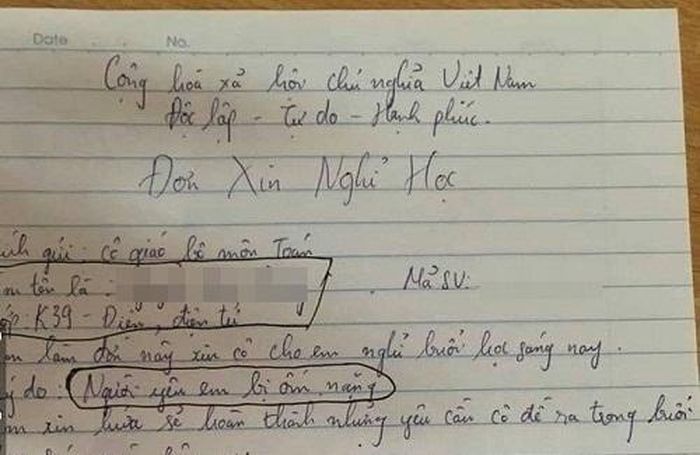 Date No.
Cộng hoà xả hội chủ nghĩa Việt Nam
Độc lập - Tự do - Hạnh phúc.
Đơn Xin Nghỉ Học
ính gửi: cô giáo bộ môn Toán
m tên là: . Mã SV:
ớp: K39 - Điện, điện tử
m làm đơn này xin cô cho em nghỉ buổi học sáng nay.
ý do: Người yêu em bị ốm nặng
m xin hứa sẽ hoàn thành những yêu cầu cô đề ra trong buổi